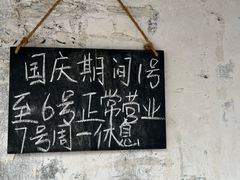 国庆期间1号
至6号正常营业
7号周一休息